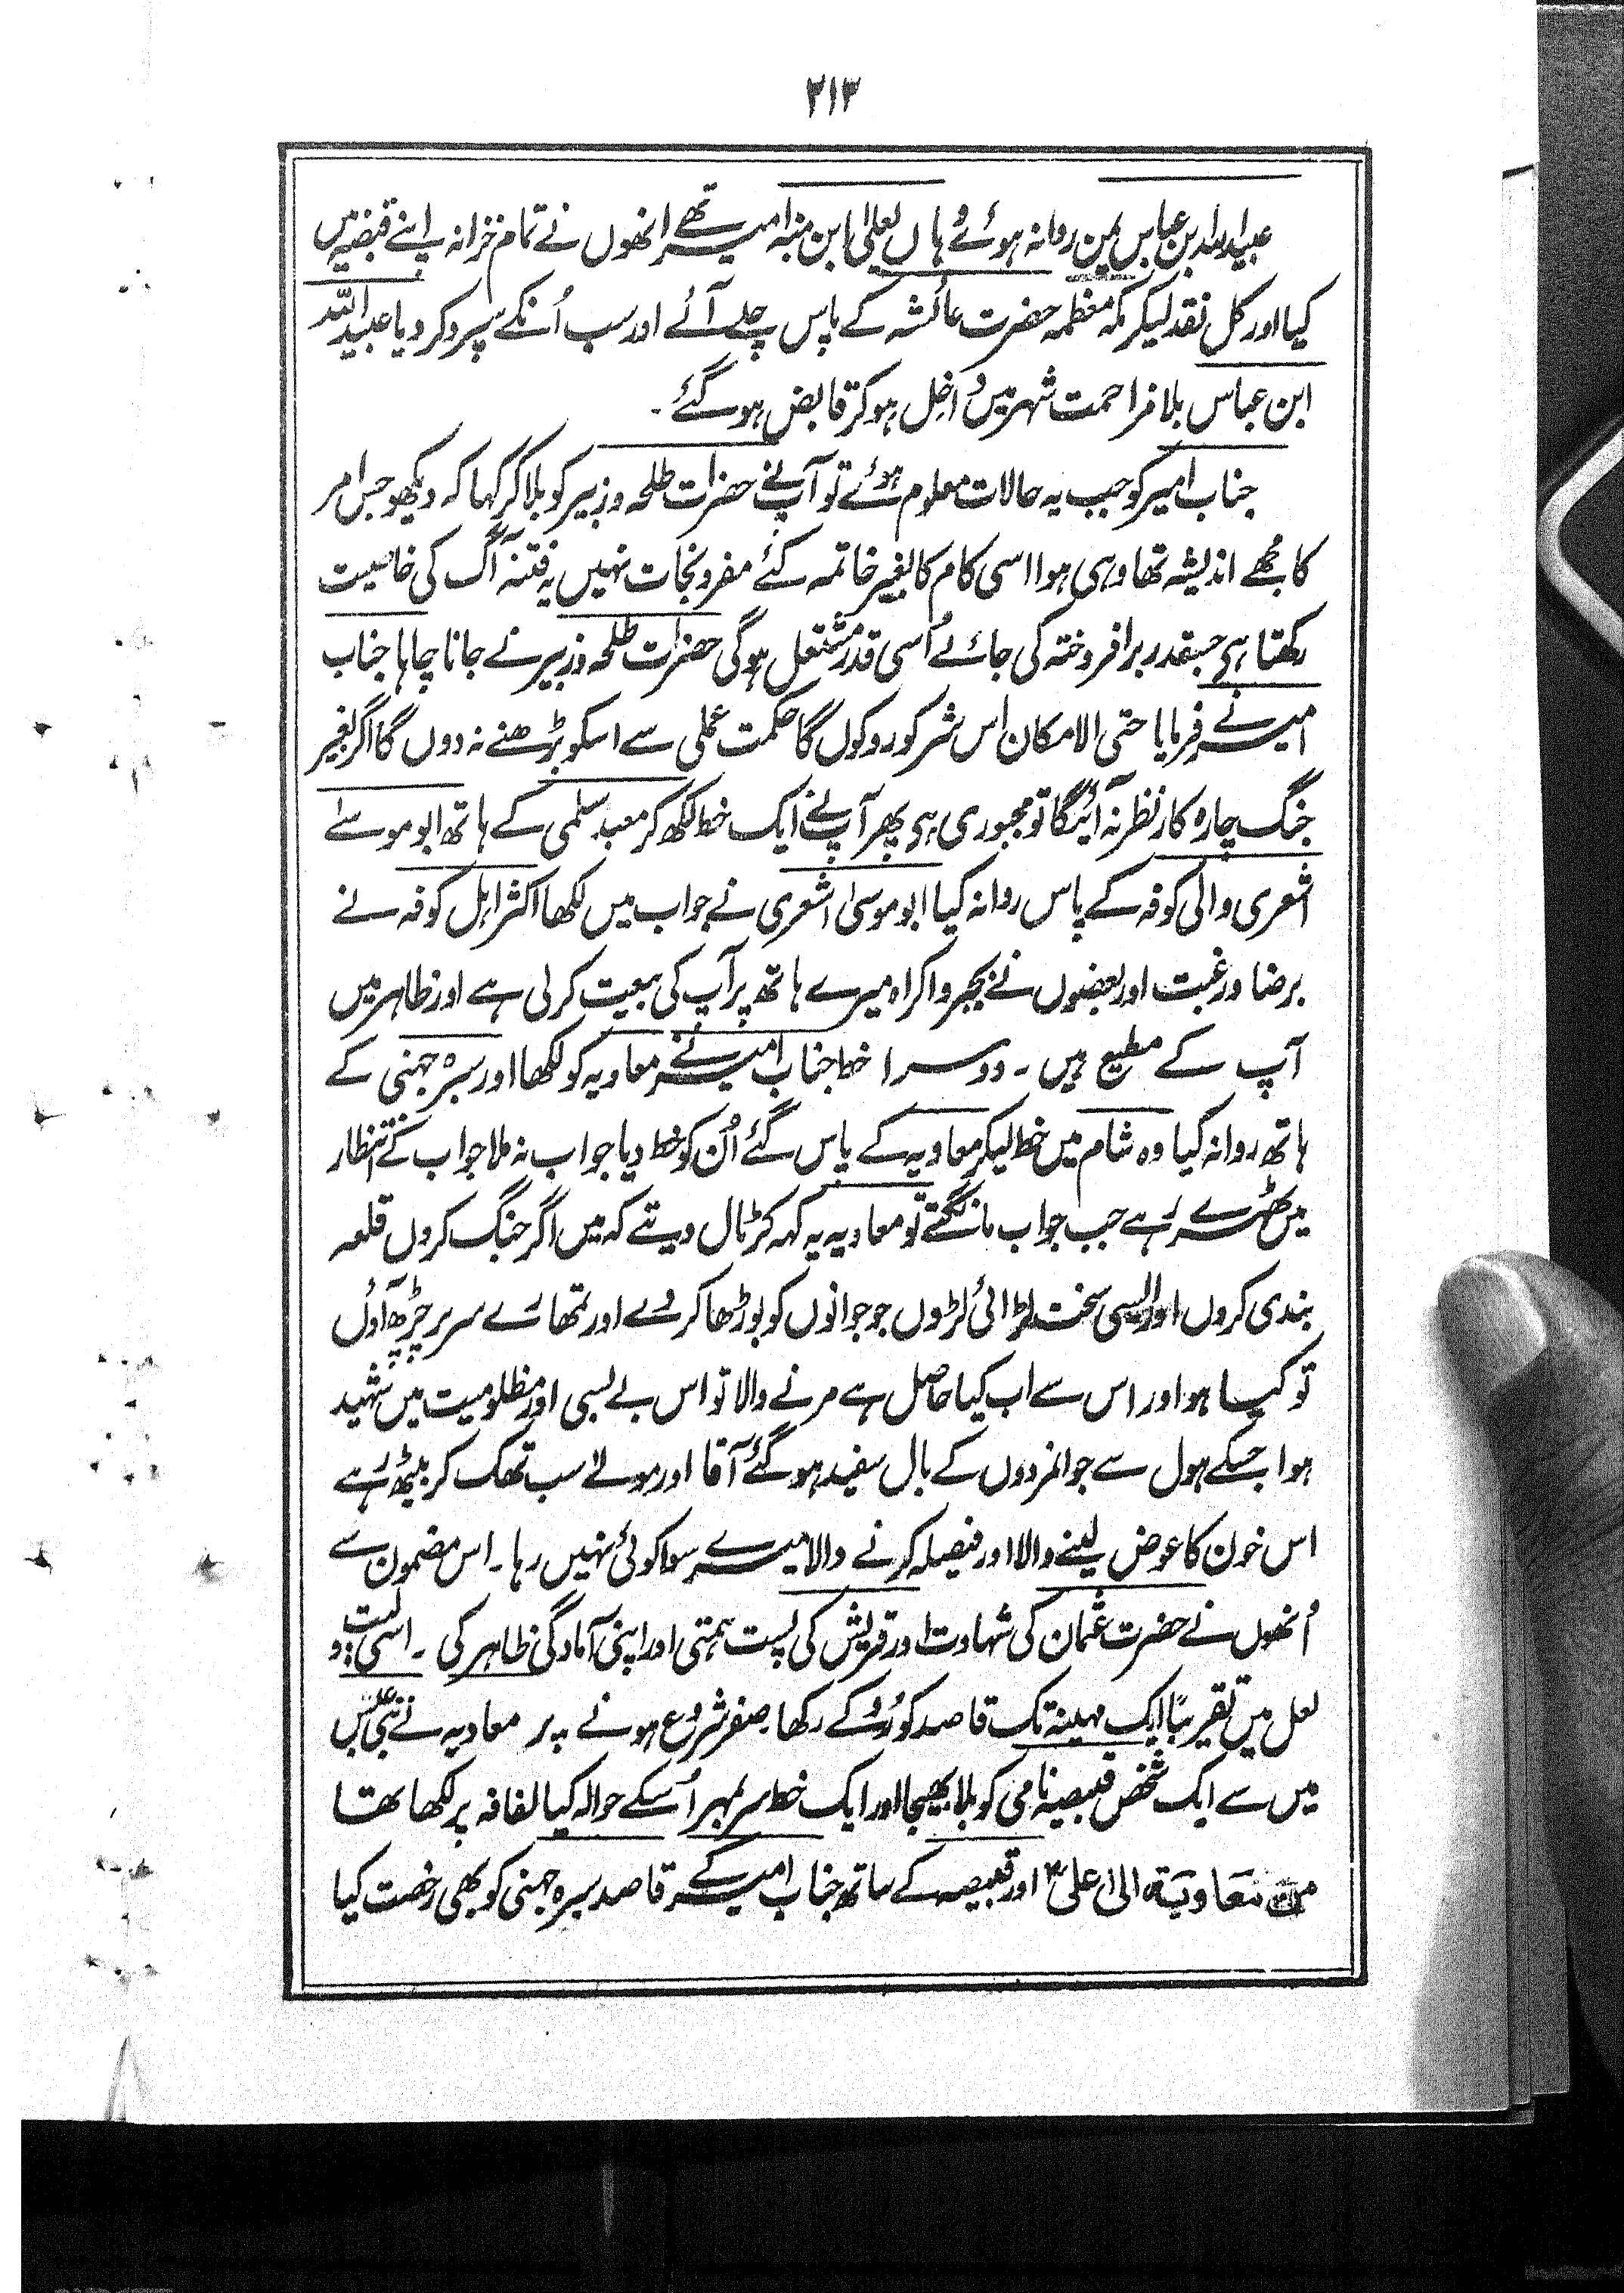 ۲۱۳
عبیداللہ بن عباس یمن روانہ ہوئے وہاں یعلی ابن منبہ امیر تھے انھوں نے تمام خزانہ اپنے قبضہ میں
کیا اور کل نقد لیکر مکہ معظمہ حضرت عائشہ کے پاس چلے آئے اور سب اُنکے سپرد کر دیا عبیداللہ
ابن عباس بلا مزاحمت شہر میں داخل ہو کر قابض ہو گئے۔
جناب امیر کو جب یہ حالات معلوم ہوئے تو آپنے حضرات طلحہ و زبیر کو بلا کر کہا کہ دیکھو جس امر
کا مجھے اندیشہ تھا وہی ہوا اسی کام کا بغیر خاتمہ کئے مفر و نجات نہیں یہ فتنہ آگ کی خاصیت
رکھتا ہی جسقدر برافروختہ کی جائے اُسی قدر مشتعل ہوگی حضرات طلحہ و زبیر نے جانا چاہا جناب
امیر نے فرمایا حتی الامکان اس شر کو روکوں گا حکمت عملی سے اسکو بڑھنے نہ دوں گا اگر بغیر
جنگ چارہ کار نظر نہ آئیگا تو مجبوری ہی پھر آپنے ایک خط لکھ کر معبد سلمی کے ہاتھ ابو موسے
اشعری والی کوفہ کے پاس روانہ کیا ابو موسیٰ اشعری نے جواب میں لکھا اکثر اہل کوفہ نے
برضا و رغبت اور بعضوں نے بجبر و اکراہ میرے ہاتھ پر آپ کی بیعت کر لی ہے اور ظاہر میں
آپ کے مطیع ہیں۔ دوسرا خط جناب امیر نے معاویہ کو لکھا اور سبرہ جہنی کے
ہاتھ روانہ کیا وہ شام میں خط لیکر معاویہ کے پاس گئے اُن کو خط دیا جواب نہ ملا جواب کے انتظار
میں ٹھہرے رہے جب جواب مانگتے تو معاویہ یہ کہہ کر ٹال دیتے کہ میں اگر جنگ کروں قلعہ
بندی کروں اور ایسی سخت لڑائی لڑوں جو جوانوں کو بوڑھا کر دے اور تمھارے سر پر چڑھ آوُں
تو کیسا ہو اور اس سے اب کیا حاصل ہے مرنے والا تو اس بے بسی اور مظلومیت میں شہید
ہوا جسکے ہول سے جوانمردوں کے بال سفید ہو گئے آقا اور مولے سب تھک کر بیٹھ رہے
اس خون کا عوض لینے والا اور فیصلہ کرنے والا میرے سوا کوئی نہیں رہا۔ اس مضمون سے
اُنھوں نے حضرت عثمان کی شہادت اور قریش کی پست ہمتی اور اپنی آمادگی ظاہر کی۔ اسی لیت و
لعل میں تقریباً ایک مہینہ تک قاصد کو روکے رکھا صفر شروع ہونے پر معاویہ نے بنی عبس
میں سے ایک شخص قبیصہ نامی کو بلا بھیجا اور ایک خط سر بمہر اُسکے حوالہ کیا لفافہ پر لکھا تھا
من معاویة الی علی اور قبیصہ کے ساتھ جناب امیر کے قاصد سبرہ جہنی کو بھی رخصت کیا